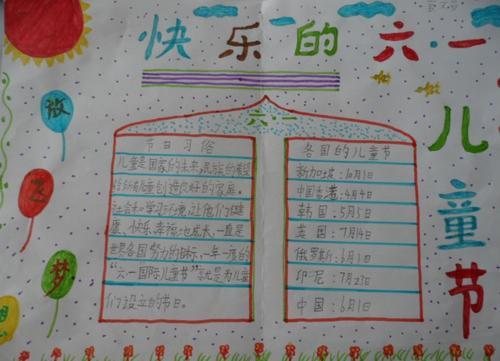 快乐的六一
儿童节
放飞梦
六一
节日习俗
儿童是国家的未来,民族的希望
给所有儿童创造良好的家庭、
社会和学习环境,让他们健
康、快乐、幸福地成长,一直是
世界各国努力的目标,一年一度的
“六一国际儿童节”就是为儿童
们设立的节日。
各国的儿童节
新加坡:10月1日
中国香港:4月4日
韩国:5月5日
美国:7月14日
俄罗斯:6月1日
印尼:7月23日
中国:6月1日